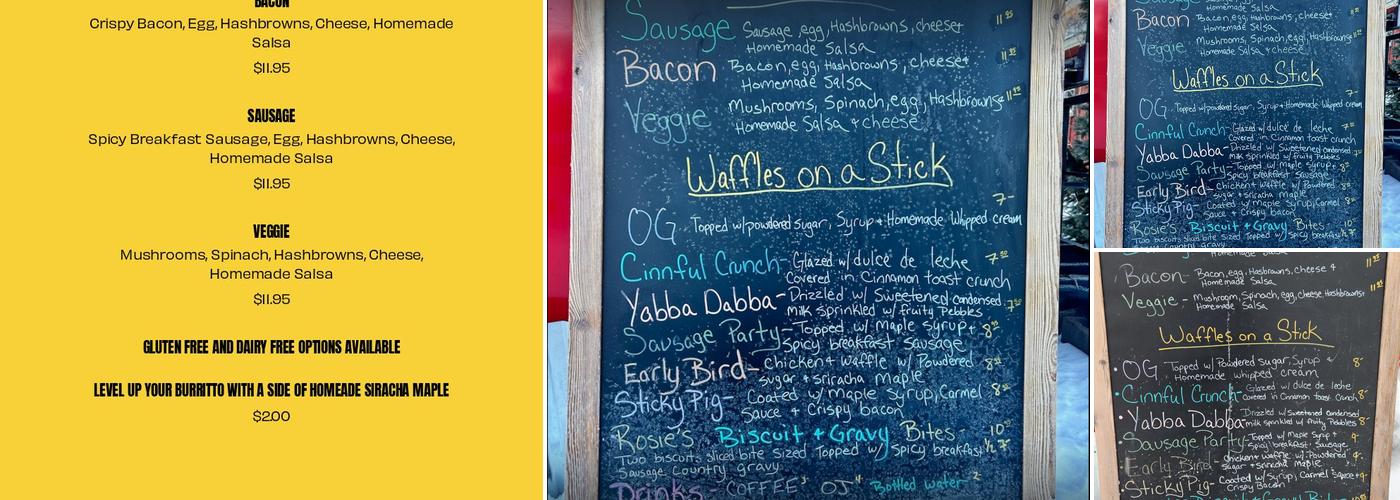 BACON
Crispy Bacon, Egg, Hashbrowns, Cheese, Homemade
Salsa
$11.95
SAUSAGE
Spicy Breakfast Sausage, Egg, Hashbrowns, Cheese,
Homemade Salsa
$11.95
VEGGIE
Mushrooms, Spinach, Hashbrowns, Cheese,
Homemade Salsa
$11.95
GLUTEN FREE AND DAIRY FREE OPTIONS AVAILABLE
LEVEL UP YOUR BURRITTO WITH A SIDE OF HOMEADE SIRACHA MAPLE
$2.00
Sausage Sausage, egg, Hashbrowns, cheese+ 11 95
Homemade Salsa
Bacon Bacon, egg, Hashbrowns, cheese+ 11 95
Homemade Salsa
Veggie Mushrooms, Spinach, egg, Hashbrowns 11 95
Homemade Salsa + cheese
Waffles on a Stick
7-
OG Topped w/powdered sugar, Syrup + Homemade Whipped cream
Cinnful Crunch- Glazed w/ dulce de leche 7 50
Covered in Cinnamon toast crunch
Yabba Dabba- Drizzled w/ Sweetened condensed 7 50
milk sprinkled w/ fruity Pebbles
Sausage Party- Topped w/ maple syrup + 8 50
Spicy breakfast sausage
Early Bird- Chicken + waffle w/ Powdered 8 50
sugar + sriracha maple
Sticky Pig- Coated w/ maple syrup, Carmel 8 50
Sauce + Crispy bacon
Rosie's Biscuit + Gravy Bites 10-
Two biscuits sliced bite sized Topped w/ Spicy breakfast ½ 7-
Sausage Country gravy
Drinks COFFEE 3 OJ 4 Bottled water 2
Homemade Salsa
Bacon Bacon, egg, Hashbrowns, cheese+
Homemade Salsa
Veggie Mushrooms, Spinach, egg, Hashbrowns
Homemade Salsa + cheese
Waffles on a Stick
7-
OG Topped w/powdered sugar, Syrup + Homemade Whipped cream
Cinnful Crunch- Glazed w/ dulce de leche 7 50
Covered in Cinnamon toast crunch
Yabba Dabba- Drizzled w/ Sweetened condensed 7 50
milk sprinkled w/ fruity Pebbles
Sausage Party- Topped w/ maple syrup + 8 50
Spicy breakfast sausage
Early Bird- Chicken + waffle w/ Powdered 8 50
sugar + sriracha maple
Sticky Pig- Coated w/ maple syrup, Carmel 8 50
Sauce + Crispy bacon
Rosie's Biscuit + Gravy Bites 10-
Two biscuits sliced bite sized Topped w/ Spicy breakfast ½ 7-
Sausage Country gravy
Bacon- Bacon, egg, Hasbrowns, cheese +
Homemade Salsa
Veggie- Mushroom, Spinach, egg, cheese, Hashbrowns+
Homemade Salsa
Waffles on a Stick
OG Topped w/ Powdered sugar, Syrup + 8-
Homemade whipped cream
Cinnful Crunch- Glazed w/ dulce de leche 8-
covered in Cinnamon toast Crunch
Yabba Dabba- Drizzled w/ Sweetened condensed 8-
milk sprinkled w/ fruity Pebbles
Sausage Party- Topped w/ Maple Syrup + 9-
Spicy breakfast Sausage
Early Bird- Chicken + waffle w/ Powdered 9-
sugar + sriracha maple
Sticky Pig- Coated w/ syrup, Carmel Sauce + 9-
Crispy Bacon